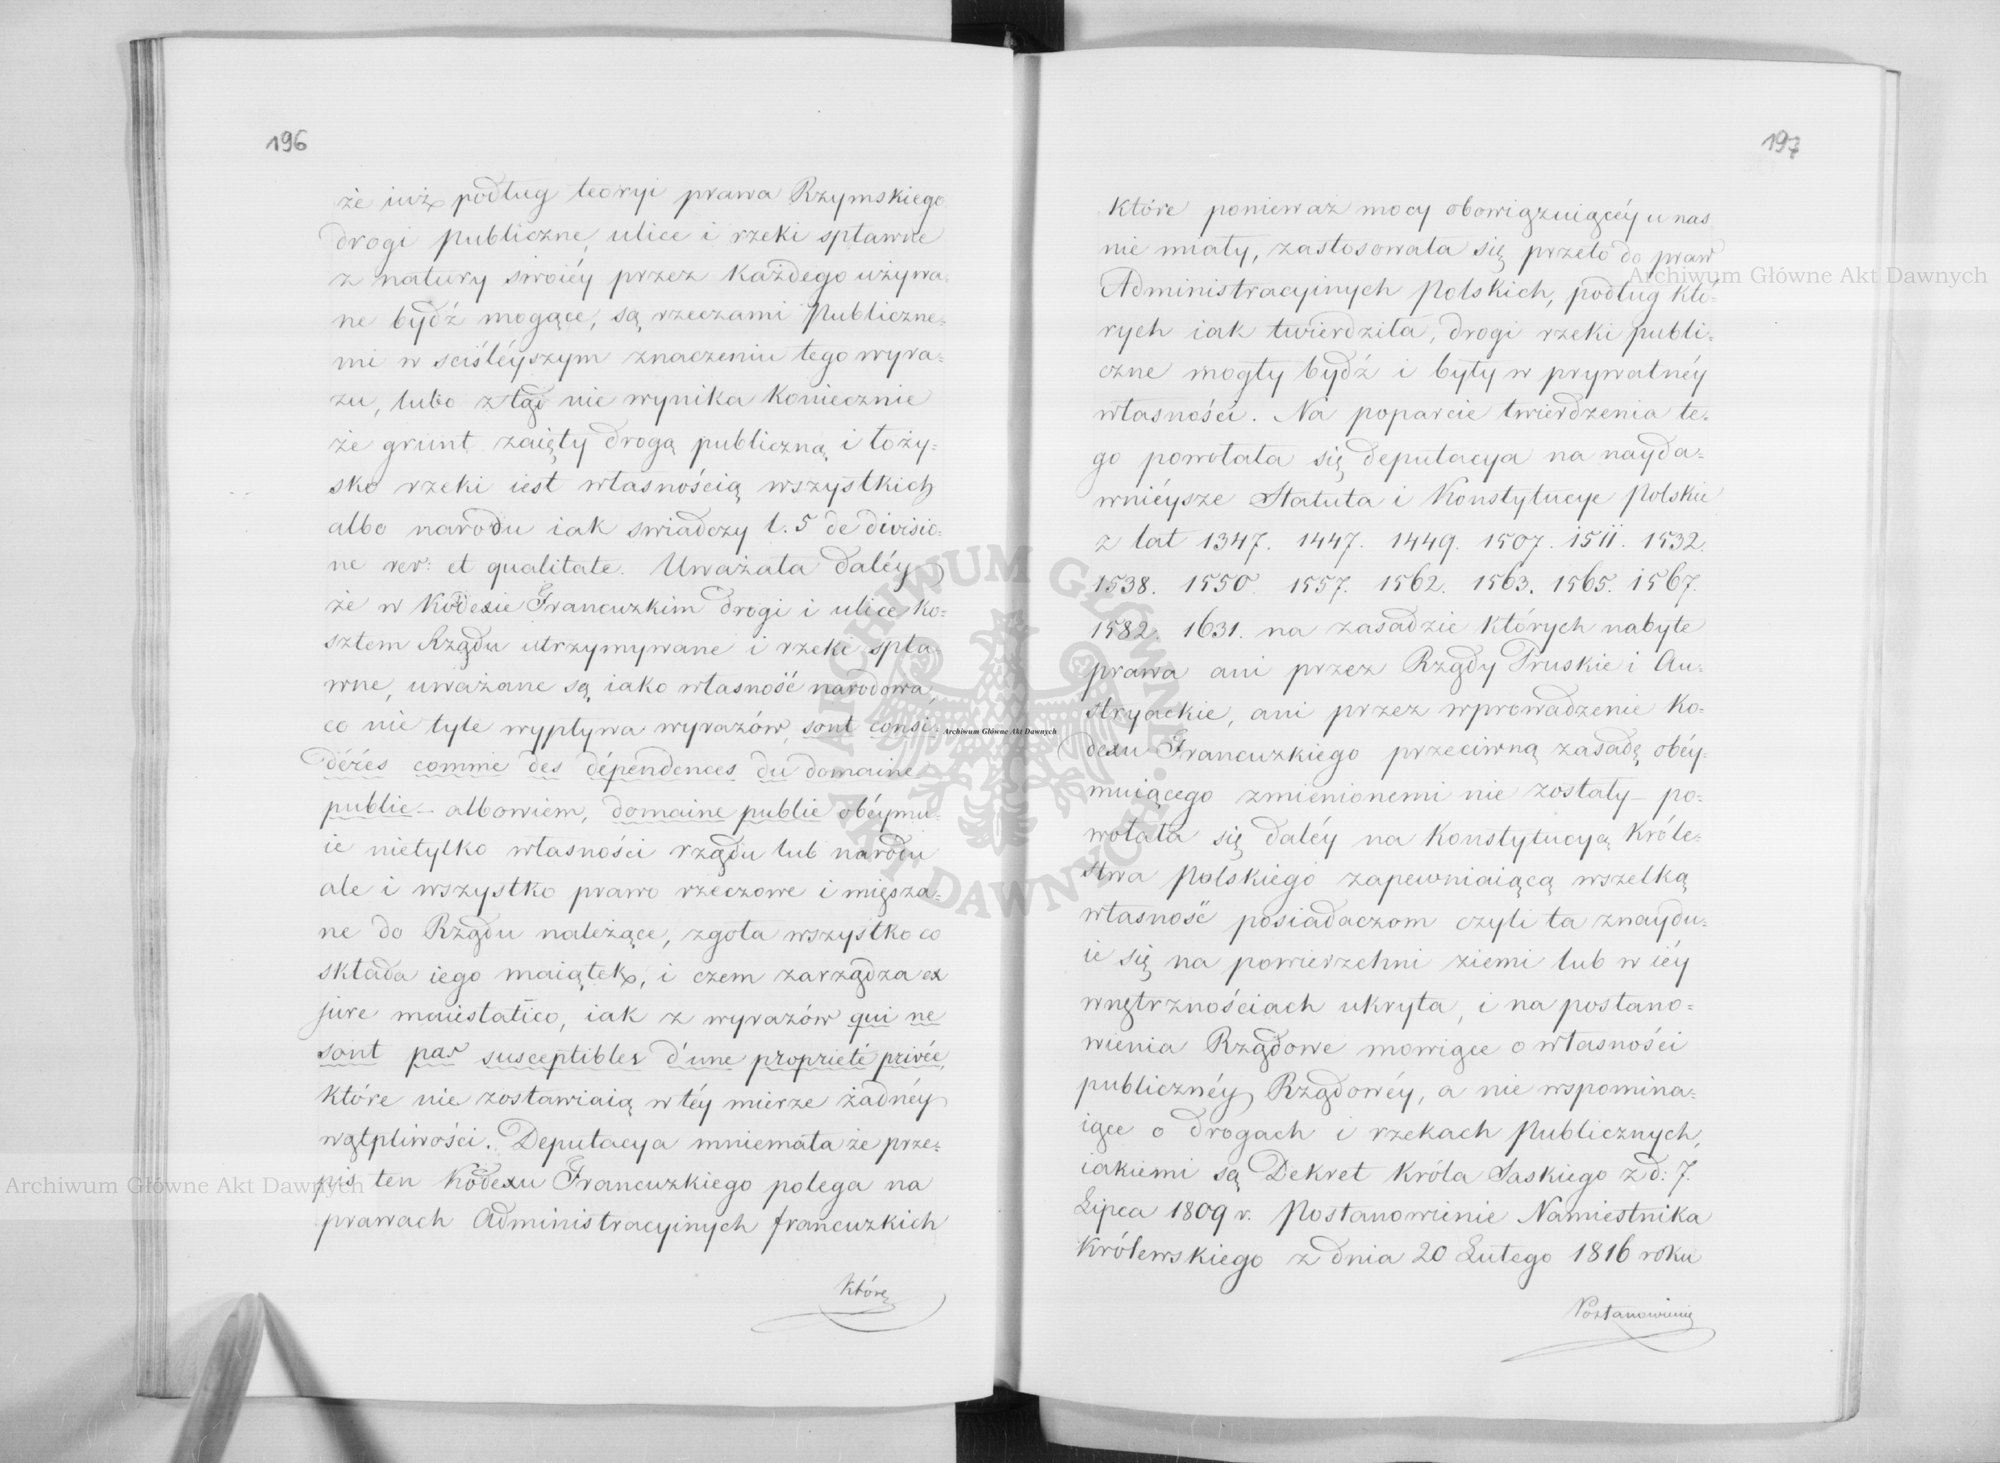 196
że iuż podług teoryi prawa Rzymskiego
drogi publiczne, ulice i rzeki spławne
z natury swoiéy przez każdego używa-
ne bydź mogące, są rzeczami Publiczne-
mi w sciśléyszym znaczeniu tego wyra-
zu, lubo ztąd nie wynika koniecznie
że grunt zaięty drogą publiczną i łoży-
sko rzeki iest własnością wszystkich
albo narodu iak swiadczy l. 5 de divisio-
ne rer: et qualitate. Uważała daléy
że w Kodexie Francuzkim drogi i ulice ko-
sztem Rządu utrzymywane i rzeki spła-
wne, uważane są iako własność narodowa,
co nie tyle wypływa wyrazów sont consi-
dérés comme des dépendences du domaine
public — albowiem, domaine public obéymu-
ie nietylko własności rządu lub narodu
ale i wszystko prawo rzeczowe i miesza-
ne do Rządu należące, zgoła wszystko co
składa iego maiątek, i czem zarządza ex
jure maiestatico, iak z wyrazów qui ne
sont pas susceptibles d'une proprieté privée,
które nie zostawiaią w téy mierze żadnéy
wątpliwości. Deputacya mniemała że prze-
pis ten Kodexu Francuzkiego polega na
prawach Administracyinych francuzkich
Które
197
które ponieważ mocy obowiązuiącéy u nas
nie miały, zastosowała się przeto do praw
Administracyinych Polskich, podług któ-
rych iak twierdziła, drogi rzeki publi-
czne mogły bydź i były w prywatnéy
własności. Na poparcie twierdzenia te-
go powołała się deputacya na nayda-
wniéysze Statuta i Konstytucye Polskie
z lat 1347. 1447. 1449. 1507. 1511. 1532.
1538. 1550. 1557. 1562. 1563. 1565. 1567.
1582. 1631. na zasadzie których nabyte
prawa ani przez Rządy Pruskie i Au-
stryackie, ani przez wprowadzenie Ko-
dexu Francuzkiego przeciwną zasadę obéy-
muiącego zmienionemi nie zostały — po-
wołała się daléy na Konstytucyą Króle-
stwa Polskiego zapewniaiącą wszelką
własność posiadaczom czyli ta znaydu-
ie się na powierzchni ziemi lub w iéy
wnętrznościach ukryta, i na postano-
wienia Rządowe mowiące o własności
publicznéy Rządowéy, a nie wspomina-
iące o drogach i rzekach Publicznych,
iakiemi są Dekret Króla Saskiego z d: 7.
Lipca 1809 r. Postanowienie Namiestnika
Królewskiego z dnia 20 Lutego 1816 roku
Postanowienie
Archiwum Główne Akt Dawnych
Archiwum Główne Akt Dawnych
Archiwum Główne Akt Dawnych
ARCHIWUM GŁÓWNE AKT DAWNYCH